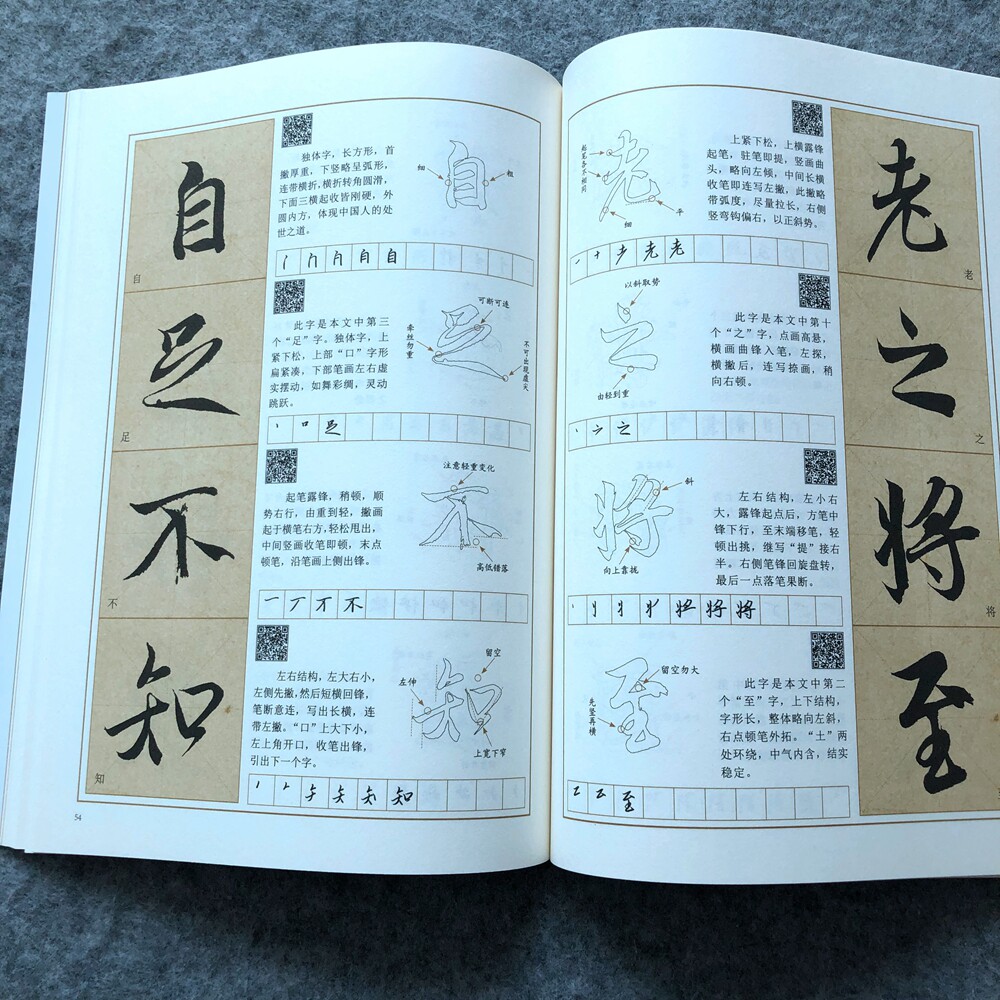 自
自
独体字，长方形，首
撇厚重，下竖略呈弧形，
连带横折，横折转角圆滑，
下面三横起收皆刚硬，外
圆内方，体现中国人的处
世之道。
细
自
粗
自自
足
足
此字是本文中第三
个“足”字。独体字，上
紧下松，上部“口”字形
扁紧凑，下部笔画左右虚
实摆动，如舞彩绸，灵动
跳跃。
可断可连
牵丝勿重
足
不可出现虚尖
口足
不
不
起笔露锋，稍顿，顺
势右行，由重到轻，撇画
起于横笔右方，轻松甩出，
中间竖画收笔即顿，末点
顿笔，沿笔画上侧出锋。
注意轻重变化
不
高低错落
一丆不不
知
知
左右结构，左大右小，
左侧先撇，然后短横回锋，
笔断意连，写出长横，连
带左撇。“口”上大下小，
左上角开口，收笔出锋，
引出下一个字。
留空
左伸
知
上宽下窄
矢矢知
54
起笔各不相同
老
细
平
上紧下松，上横露锋
起笔，驻笔即提，竖画曲
头，略向左倾，中间长横
收笔即连写左撇，此撇略
带弧度，尽量拉长，右侧
竖弯钩偏右，以正斜势。
一十耂老老
老
老
以斜取势
之
由轻到重
此字是本文中第十
个“之”字，点画高悬，
横画曲锋入笔，左探，
横撇后，连写捺画，稍
向右顿。
之之
之
之
斜
将
向上靠拢
左右结构，左小右
大，露锋起点后，方笔中
锋下行，至末端移笔，轻
顿出挑，继写“提”接右
半。右侧笔锋回旋盘转，
最后一点落笔果断。
将将
将
将
留空勿大
先竖再横
至
此字是本文中第二
个“至”字，上下结构，
字形长，整体略向左斜，
右点顿笔外拓。“土”两
处环绕，中气内含，结实
稳定。
至
至